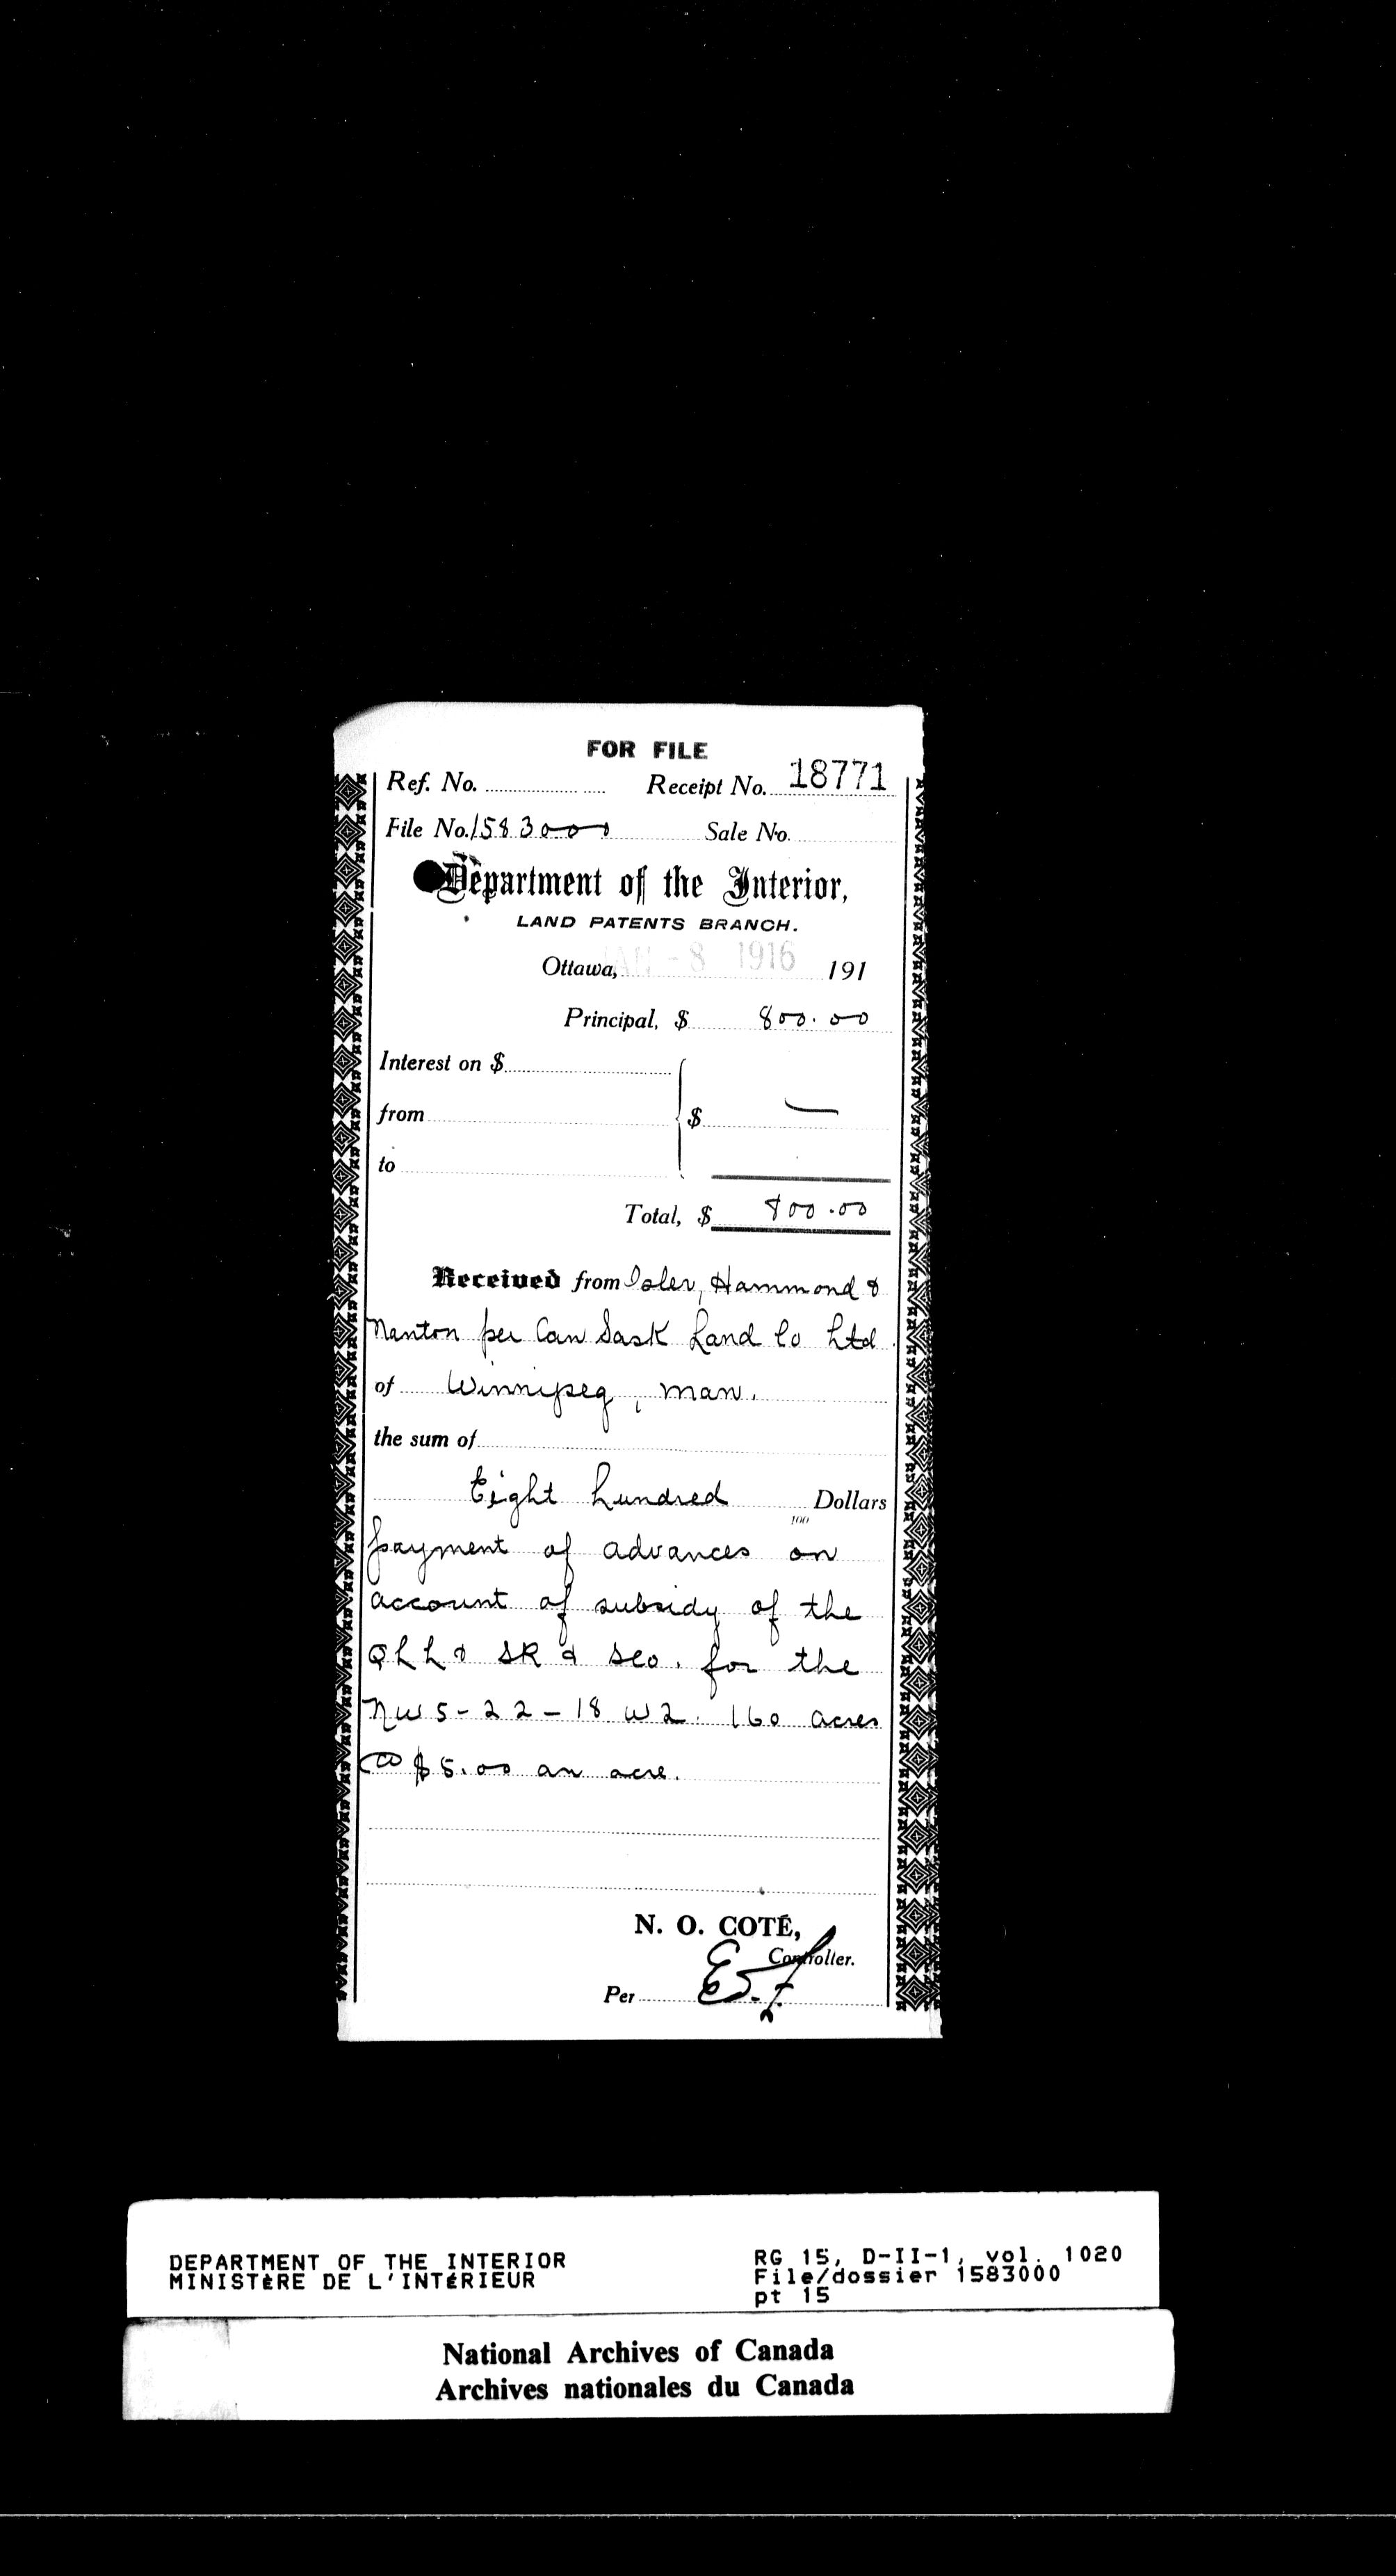 FOR FILE
Ref. No. Receipt No. 18771
File No. 1583000 Sale No.
Department of the Interior,
LAND PATENTS BRANCH.
Ottawa, JAN -8 1916 191
Principal, $ 800.00
Interest on $
from $ —
to
Total, $ 800.00
Received from Osler, Hammond &
Nanton per Can Sask Land Co Ltd.
of Winnipeg, Man.
the sum of
Eight hundred Dollars
100
payment of advances on
account of subsidy of the
Q L L & S R & S Co. for the
NW 5-22-18 W2. 160 acres
@ $5.00 an acre.
N. O. COTÉ,
Controller.
Per
DEPARTMENT OF THE INTERIOR
MINISTÈRE DE L'INTÉRIEUR
RG 15, D-II-1, vol. 1020
File/dossier 1583000
pt 15
National Archives of Canada
Archives nationales du Canada